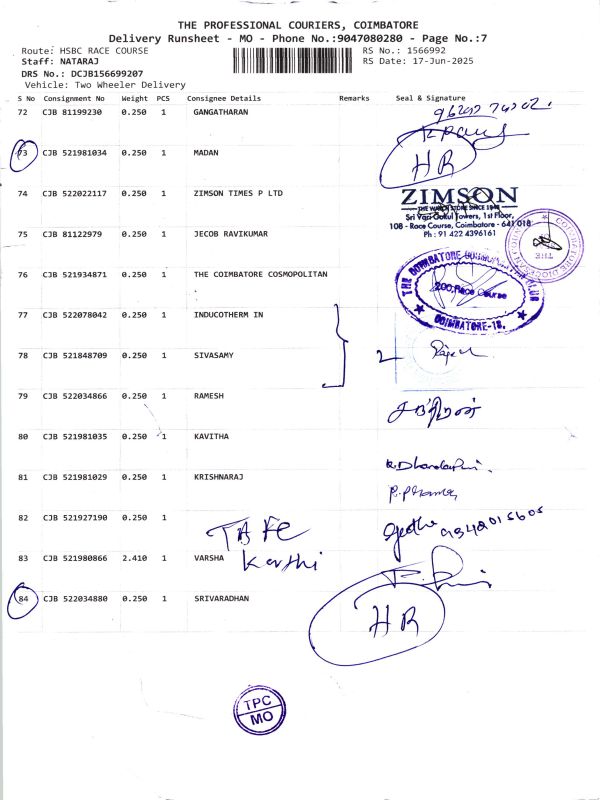 THE PROFESSIONAL COURIERS, COIMBATORE
Delivery Runsheet - MO - Phone No.:9047080280 - Page No.:7
Route: HSBC RACE COURSE
RS No.: 1566992
Staff: NATARAJ
RS Date: 17-Jun-2025
DRS No.: DCJB156699207
Vehicle: Two Wheeler Delivery
S No Consignment No Weight PCS Consignee Details Remarks Seal & Signature
72 CJB 81199230 0.250 1 GANGATHARAN
73 CJB 521981034 0.250 1 MADAN
HR
74 CJB 522022117 0.250 1 ZIMSON TIMES P LTD
ZIMSON
THE WATCH STORE SINCE 1948
Sri Vari Gokul Towers, 1st Floor,
108 - Race Course, Coimbatore - 641 018
Ph : 91 422 4396161
75 CJB 81122979 0.250 1 JECOB RAVIKUMAR
76 CJB 521934871 0.250 1 THE COIMBATORE COSMOPOLITAN
THE COIMBATORE COSMOPOLITAN CLUB
200, Race Course
COIMBATORE-18.
77 CJB 522078042 0.250 1 INDUCOTHERM IN
78 CJB 521848709 0.250 1 SIVASAMY
2
79 CJB 522034866 0.250 1 RAMESH
80 CJB 521981035 0.250 1 KAVITHA
81 CJB 521981029 0.250 1 KRISHNARAJ
82 CJB 521927190 0.250 1
83 CJB 521980866 2.410 1 VARSHA
Karthi
84 CJB 522034880 0.250 1 SRIVARADHAN
HR
TPC
MO